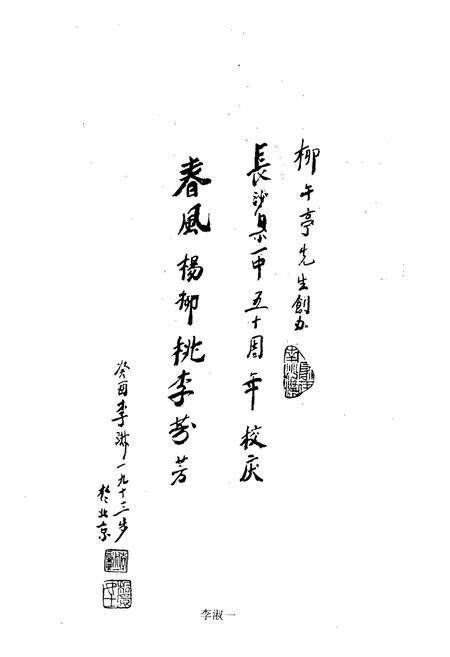 柳午亭先生創办
長沙県一中五十周年校庆
春風楊柳桃李芬芳
癸酉李淑一九十三岁
於北京
李淑一